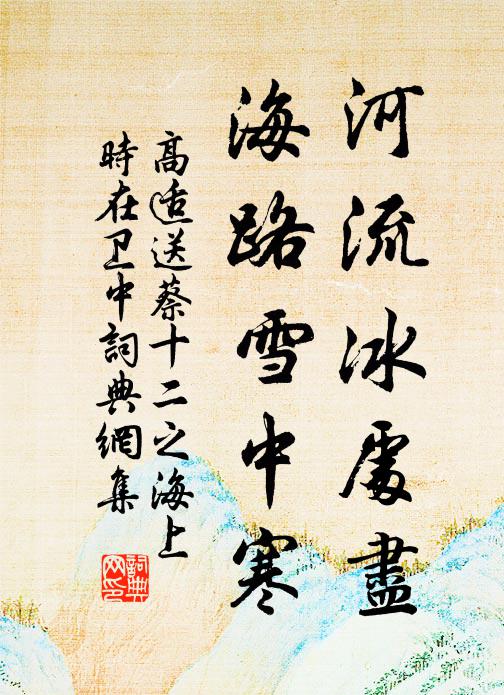 河流冰處盡
海路雪中寒
高适送蔡十二之海上
時在卫中詞典網集
詞典网印